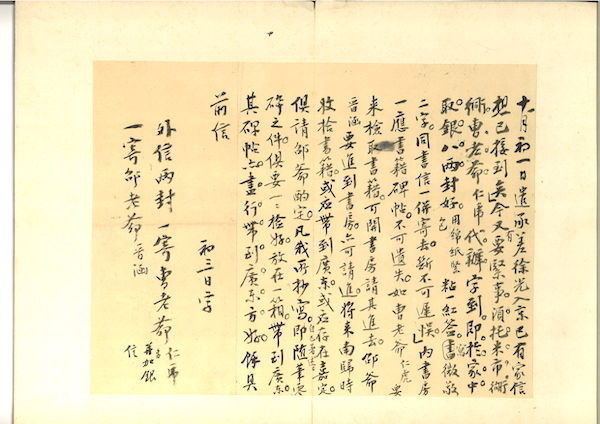 十月初一日遣承差徐光入京已有家信
想已接到矣今又百要緊事須托米市衚
衕曹老爺仁虎代辦字到即於家中
取銀八兩封好用綿紙包緊粘一紅簽寫微敬
二字同書信一併寄去斷不可遲悞內書房
一應書籍碑帖不可遺失如曹老爺仁虎要
來檢取書籍可開書房請其進去邵爺
晉涵要進到書房亦可請進將來南歸時
收拾書籍或應帶到廣東或應存在嘉定
俱請邵爺酌定凡我所抄寫自己著述即隨筆零
碎之件俱要一一檢好放在箱帶到廣東
其碑帖亦盡行帶到廣東方好餘具
前信
初三日字
外信兩封一寄曹老爺仁虎并加銀
一寄邵老爺晉涵信